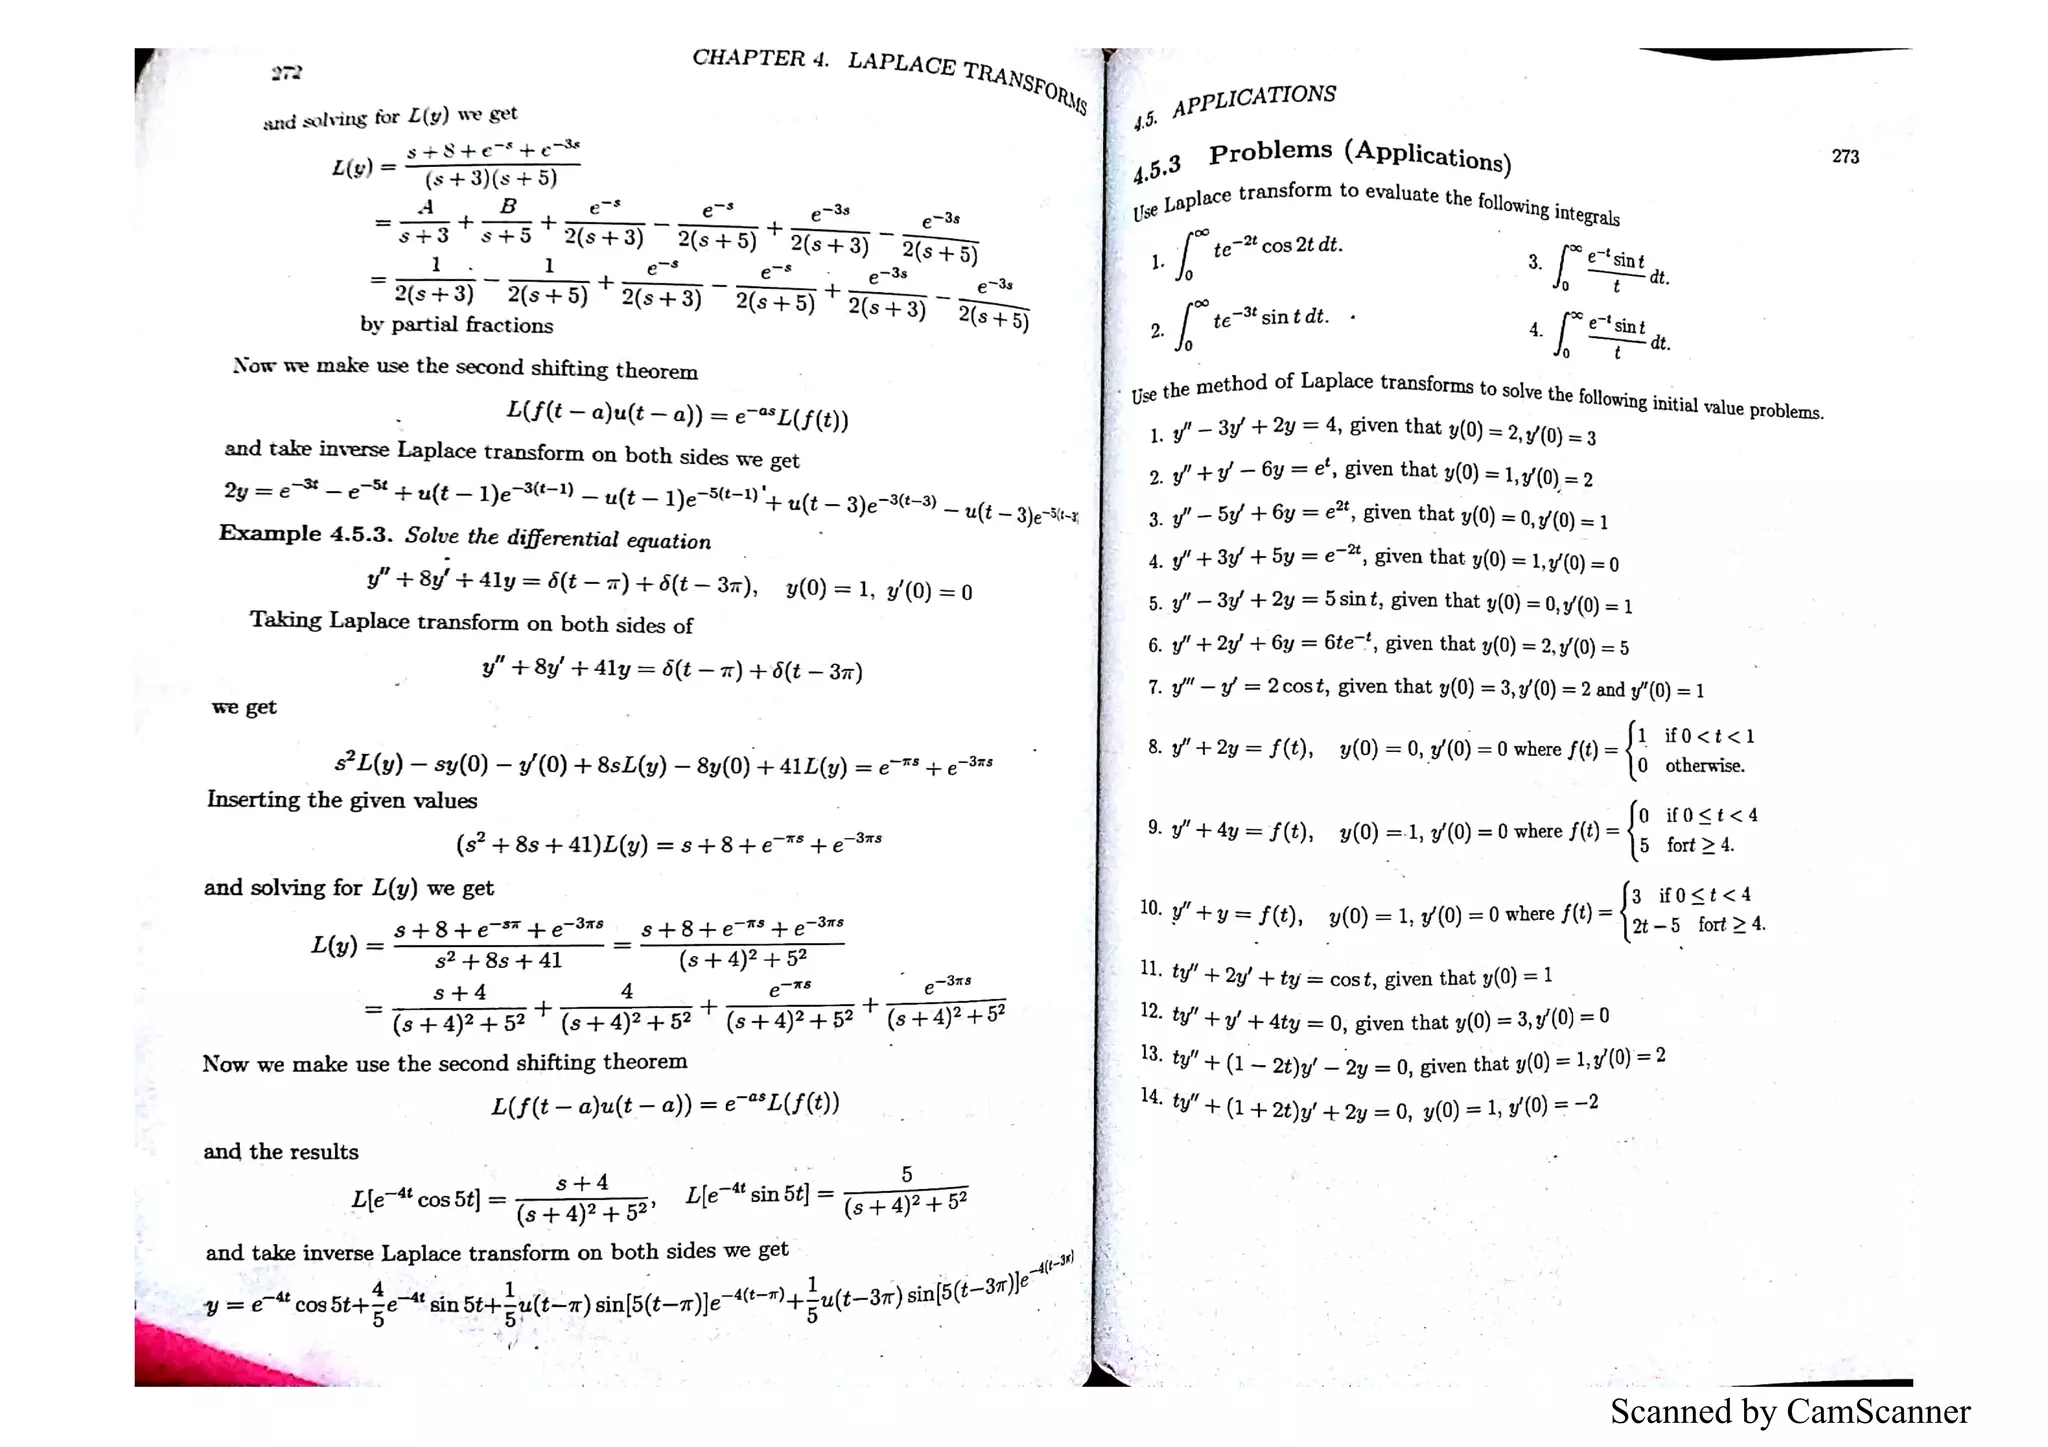 272
CHAPTER 4. LAPLACE TRANSFORMS
and solving for L(y) we get
L(y) = \frac{s + 8 + e^{-s} + e^{-3s}}{(s + 3)(s + 5)}
= \frac{A}{s + 3} + \frac{B}{s + 5} + \frac{e^{-s}}{2(s + 3)} − \frac{e^{-s}}{2(s + 5)} + \frac{e^{-3s}}{2(s + 3)} − \frac{e^{-3s}}{2(s + 5)}
= \frac{1}{2(s + 3)} − \frac{1}{2(s + 5)} + \frac{e^{-s}}{2(s + 3)} − \frac{e^{-s}}{2(s + 5)} + \frac{e^{-3s}}{2(s + 3)} − \frac{e^{-3s}}{2(s + 5)}
by partial fractions
Now we make use the second shifting theorem
L(f(t − a)u(t − a)) = e^{-as}L(f(t))
and take inverse Laplace transform on both sides we get
2y = e^{-3t} − e^{-5t} + u(t − 1)e^{-3(t−1)} − u(t − 1)e^{-5(t−1)} + u(t − 3)e^{-3(t−3)} − u(t − 3)e^{-5(t−3)}
Example 4.5.3. Solve the differential equation
y'' + 8y' + 41y = δ(t − π) + δ(t − 3π), y(0) = 1, y'(0) = 0
Taking Laplace transform on both sides of
y'' + 8y' + 41y = δ(t − π) + δ(t − 3π)
we get
s^2L(y) − sy(0) − y'(0) + 8sL(y) − 8y(0) + 41L(y) = e^{-πs} + e^{-3πs}
Inserting the given values
(s^2 + 8s + 41)L(y) = s + 8 + e^{-πs} + e^{-3πs}
and solving for L(y) we get
L(y) = \frac{s + 8 + e^{-sπ} + e^{-3πs}}{s^2 + 8s + 41} = \frac{s + 8 + e^{-πs} + e^{-3πs}}{(s + 4)^2 + 5^2}
= \frac{s + 4}{(s + 4)^2 + 5^2} + \frac{4}{(s + 4)^2 + 5^2} + \frac{e^{-πs}}{(s + 4)^2 + 5^2} + \frac{e^{-3πs}}{(s + 4)^2 + 5^2}
Now we make use the second shifting theorem
L(f(t − a)u(t − a)) = e^{-as}L(f(t))
and the results
L[e^{-4t} cos 5t] = \frac{s + 4}{(s + 4)^2 + 5^2}, L[e^{-4t} sin 5t] = \frac{5}{(s + 4)^2 + 5^2}
and take inverse Laplace transform on both sides we get
y = e^{-4t} cos 5t + \frac{4}{5}e^{-4t} sin 5t + \frac{1}{5}u(t−π) sin[5(t−π)]e^{-4(t−π)} + \frac{1}{5}u(t−3π) sin[5(t−3π)]e^{-4(t−3π)}
4.5. APPLICATIONS
273
4.5.3 Problems (Applications)
Use Laplace transform to evaluate the following integrals
1. \int_0^∞ te^{-2t} cos 2t dt.
2. \int_0^∞ te^{-3t} sin t dt.
3. \int_0^∞ \frac{e^{-t} sin t}{t} dt.
4. \int_0^∞ \frac{e^{-t} sin t}{t} dt.
Use the method of Laplace transforms to solve the following initial value problems.
1. y'' − 3y' + 2y = 4, given that y(0) = 2, y'(0) = 3
2. y'' + y' − 6y = e^t, given that y(0) = 1, y'(0) = 2
3. y'' − 5y' + 6y = e^{2t}, given that y(0) = 0, y'(0) = 1
4. y'' + 3y' + 5y = e^{-2t}, given that y(0) = 1, y'(0) = 0
5. y'' − 3y' + 2y = 5 sin t, given that y(0) = 0, y'(0) = 1
6. y'' + 2y' + 6y = 6te^{-t}, given that y(0) = 2, y'(0) = 5
7. y''' − y' = 2 cos t, given that y(0) = 3, y'(0) = 2 and y''(0) = 1
8. y'' + 2y = f(t), y(0) = 0, y'(0) = 0 where f(t) = { 1 if 0 < t < 1
0 otherwise.
9. y'' + 4y = f(t), y(0) = 1, y'(0) = 0 where f(t) = { 0 if 0 ≤ t < 4
5 fort ≥ 4.
10. y'' + y = f(t), y(0) = 1, y'(0) = 0 where f(t) = { 3 if 0 ≤ t < 4
2t − 5 fort ≥ 4.
11. ty'' + 2y' + ty = cos t, given that y(0) = 1
12. ty'' + y' + 4ty = 0, given that y(0) = 3, y'(0) = 0
13. ty'' + (1 − 2t)y' − 2y = 0, given that y(0) = 1, y'(0) = 2
14. ty'' + (1 + 2t)y' + 2y = 0, y(0) = 1, y'(0) = −2
Scanned by CamScanner